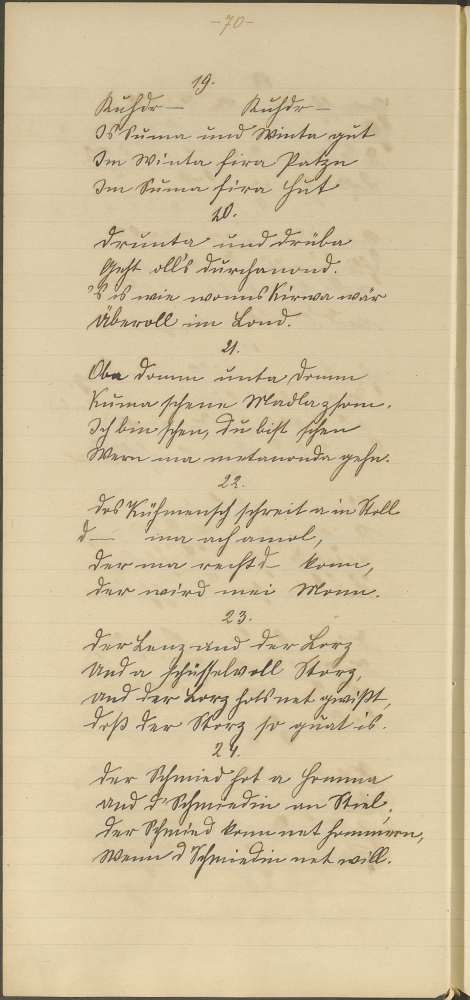 -70-
19.
Kuhdr— Kuhdr—
Is Suma und Winta gut
Im Winta fira Patzn
Im Suma fira Hut
20.
Drunta und drüba
Geht olls durchanond.
's is wie wonns Kirwa wär
Überoll im Lond.
21.
Oba Domm unta Domm
Kuma schene Madla zsom.
Ich bin schen, du bist schen
Wern ma metanonda gehn.
22.
Das Kühmensch schreit a in Stoll
d— ma ach amol,
Der ma recht d— konn,
der wird mei Monn.
23.
Der Lenz und der Lorz
Und a Schüsselvoll Storz,
und der Lorz hots net gwißt,
doß der Storz so guat is.
24.
Der Schmied hot a Homma
und d' Schmiedin an Stiel,
Der Schmied konn net hommern,
Wenn d' Schmiedin net will.